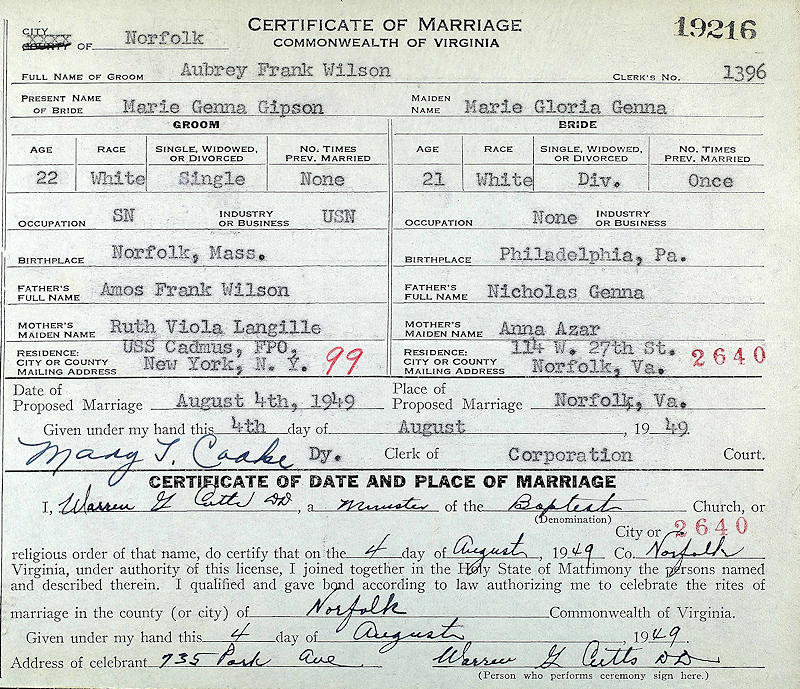 CITY
XXXX
COUNTY OF Norfolk
CERTIFICATE OF MARRIAGE
COMMONWEALTH OF VIRGINIA
19216
FULL NAME OF GROOM Aubrey Frank Wilson CLERK'S NO. 1396
PRESENT NAME OF BRIDE Marie Genna Gipson MAIDEN NAME Marie Gloria Genna
GROOM BRIDE
AGE RACE SINGLE, WIDOWED, OR DIVORCED NO. TIMES PREV. MARRIED AGE RACE SINGLE, WIDOWED, OR DIVORCED NO. TIMES PREV. MARRIED
22 White Single None 21 White Div. Once
OCCUPATION SN INDUSTRY OR BUSINESS USN OCCUPATION None INDUSTRY OR BUSINESS
BIRTHPLACE Norfolk, Mass. BIRTHPLACE Philadelphia, Pa.
FATHER'S FULL NAME Amos Frank Wilson FATHER'S FULL NAME Nicholas Genna
MOTHER'S MAIDEN NAME Ruth Viola Langille MOTHER'S MAIDEN NAME Anna Azar
RESIDENCE: CITY OR COUNTY MAILING ADDRESS USS Cadmus, FPO, New York, N. Y. 99 RESIDENCE: CITY OR COUNTY MAILING ADDRESS 114 W. 27th St. Norfolk, Va. 2640
Date of Proposed Marriage August 4th, 1949 Place of Proposed Marriage Norfolk, Va.
Given under my hand this 4th day of August, 1949.
Mary T. Cooke Dy. Clerk of Corporation Court.
CERTIFICATE OF DATE AND PLACE OF MARRIAGE
I, Warren G Cutts DD, a Minister of the Baptist Church, or
(Denomination)
City or 2640
religious order of that name, do certify that on the 4 day of August, 1949 Co. Norfolk
Virginia, under authority of this license, I joined together in the Holy State of Matrimony the persons named
and described therein. I qualified and gave bond according to law authorizing me to celebrate the rites of
marriage in the county (or city) of Norfolk Commonwealth of Virginia.
Given under my hand this 4 day of August 1949.
Address of celebrant 735 Park Ave Warren G Cutts DD
(Person who performs ceremony sign here.)